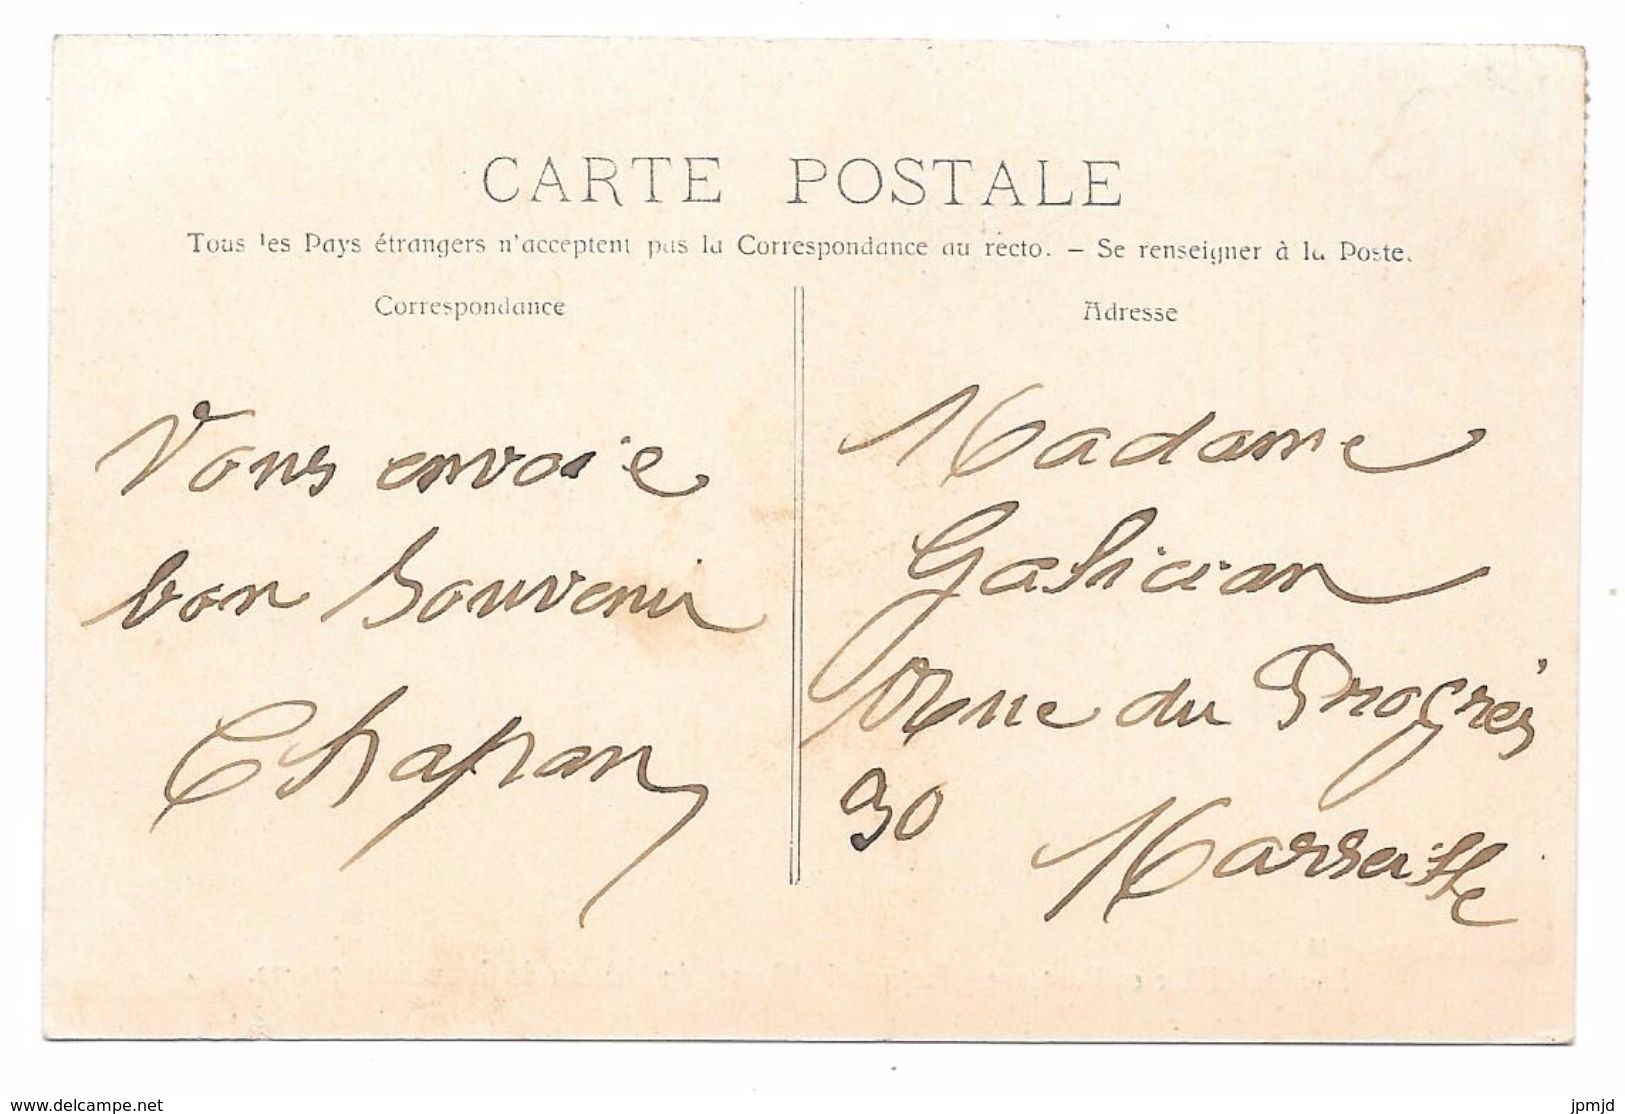 CARTE POSTALE
Tous les Pays étrangers n'acceptent pas la Correspondance au recto. – Se renseigner à la Poste.
Correspondance
Vous envoie
bon Souvenir
Chapan
Adresse
Madame
Galician
Rue du Progrès
30
Marseille
www.delcampe.net
jpmjd